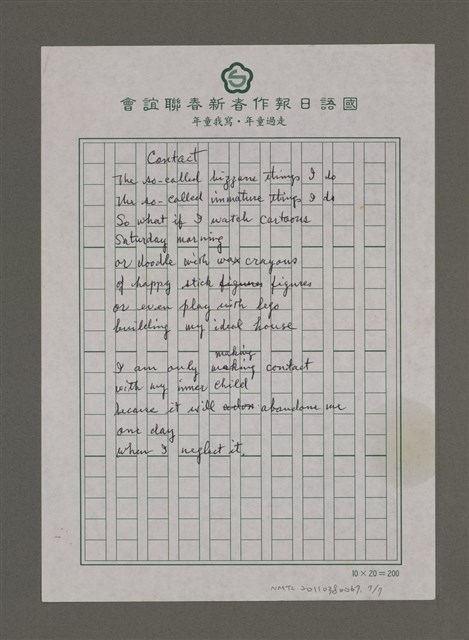 會誼聯春新者作報日語國
年童我寫・年童過走
Contact
The so-called bizzare things I do
the so-called immature things I do
So what if I watch cartoons
Saturday morning
or doodle with wax crayons
of happy stick figures figures
or even play with lego
building my ideal house
making
I am only making contact
with my inner child
because it will abandone me
one day
when I neglect it.
10×20=200
NMTL 20110380067. 7/7